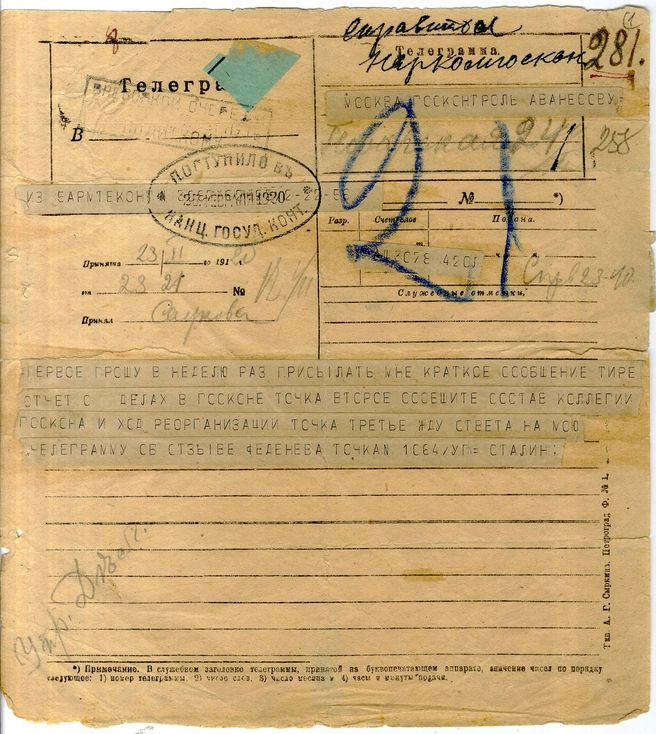 8
Справиться
Наркомгоскон
281.
Телеграмма.
Телегра
МОСКВА ГОСКОНТРОЛЬ АВАНЕСОВУ=
В
24
258
21
ПОСТУПИЛО ВЪ
1920
КАНЦ. ГОСУД. КОНТ.
ИЗ
№
*)
Разр.
Счетъ слов
Подана.
Принята 23/II го 191
на 23 21 №
Принял
3028 420
Служебные отметки,
ПЕРВОЕ ПРОШУ В НЕДЕЛЮ РАЗ ПРИСЫЛАТЬ МНЕ КРАТКОЕ СООБЩЕНИЕ ТИРЕ
ОТЧЕТ О ДЕЛАХ В ГОСКОНЕ ТОЧКА ВТОРОЕ СООБЩИТЕ СОСТАВ КОЛЛЕГИИ
ГОСКОНА И ХОД РЕОРГАНИЗАЦИИ ТОЧКА ТРЕТЬЕ ЖДУ ОТВЕТА НА МОЮ
ТЕЛЕГРАММУ ОБ ОТЗЫВЕ ФЕДЕНЕВА ТОЧКАМ 1064/УП= СТАЛИН;
Тип. А. Г. Сыркинъ. Петроград. Ф. № 1.
*) Примечание. В служебном заголовке телеграммы, принятой на буквопечатающем аппарате, значение чисел по порядку
следующие: 1) номер телеграммы, 2) число слов, 3) число месяца и 4) часы и минуты подачи.